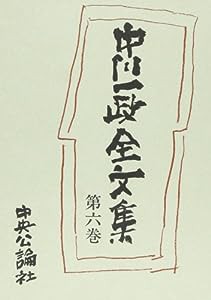 中川一政全文集
第六巻
中央公論社